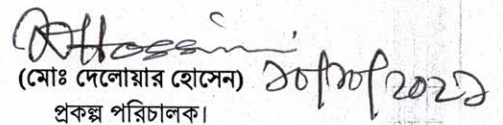 (মোঃ দেলোয়ার হোসেন) ১০/১০/২০২১
প্রকল্প পরিচালক।